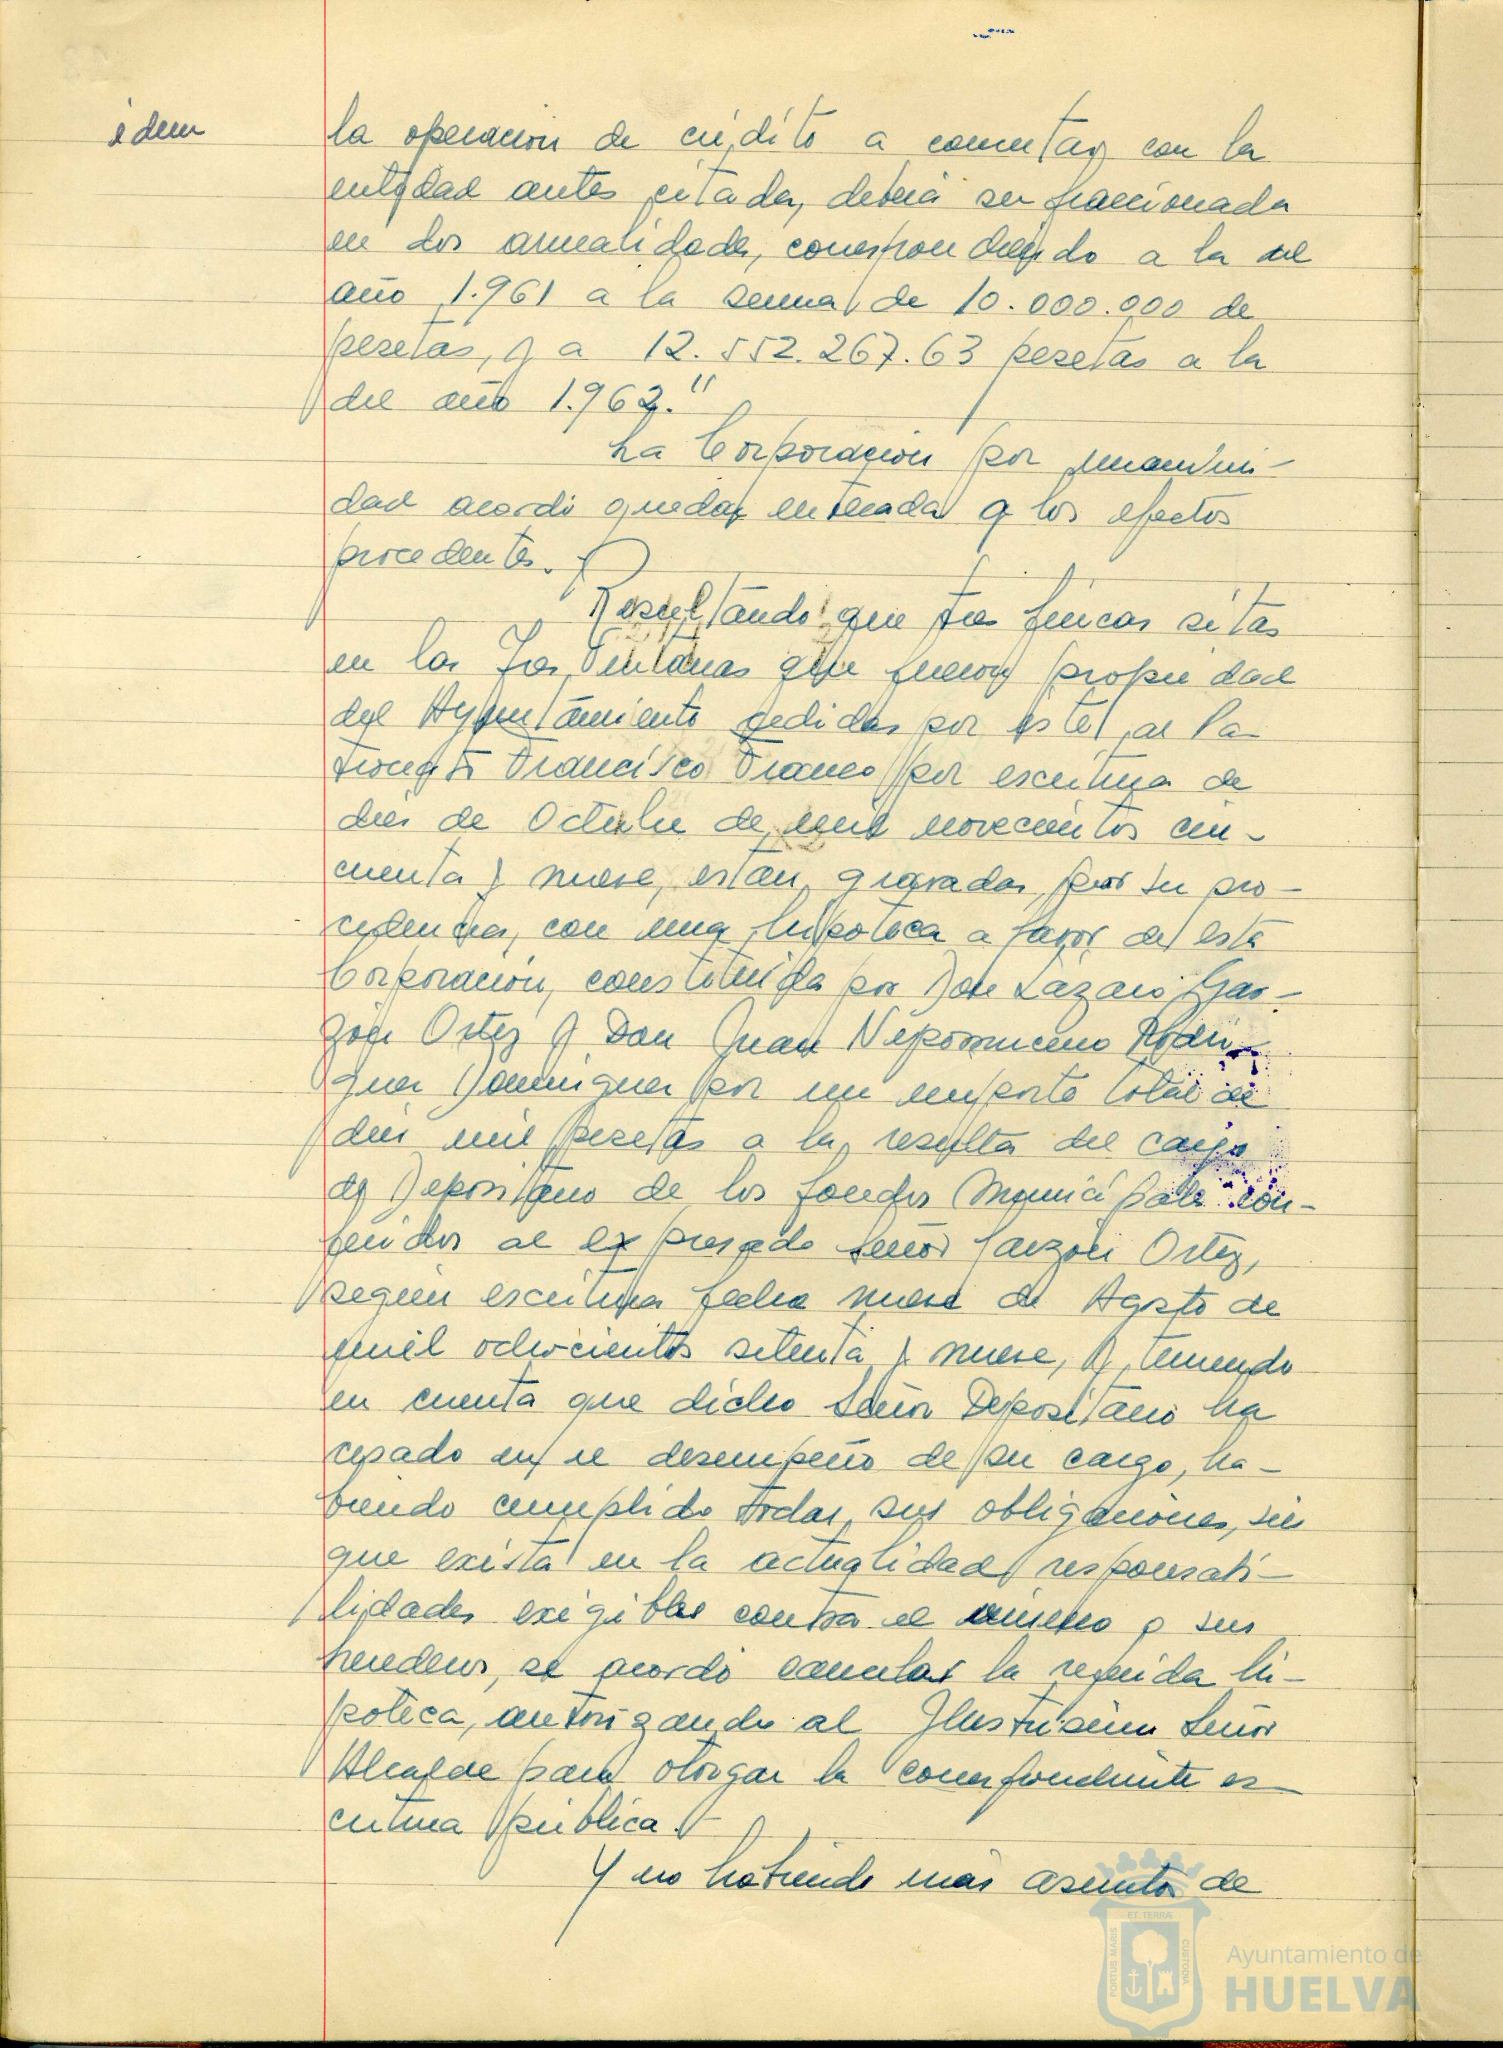 idem
la operación de crédito a concertar con la
entidad antes citada, deberá ser fraccionada
en dos anualidades, correspondiendo a la del
año 1.961 a la suma de 10.000.000 de
pesetas, y a 12.552.267.63 pesetas a la
del año 1.962."
La Corporación por unanimi-
dad acordó quedar enterada a los efectos
procedentes.
Resultando que tres fincas sitas
en las Tres Ventanas que fueron propiedad
del Ayuntamiento cedidas por éste al Pa-
tronato Francisco Franco por escritura de
diez de Octubre de mil novecientos cin-
cuenta y nueve, están gravadas, por su pro-
cedencia, con una hipoteca a favor de esta
Corporación, constituida por Don Lázaro Gar-
zón Ortiz y Don Juan Nepomuceno Rodri-
guez Dominguez por un importe total de
diez mil pesetas a la resulta del cargo
de Depositario de los fondos Municipales con-
feridos al expresado Señor Garzón Ortiz,
según escritura fecha nueve de Agosto de
mil ochocientos setenta y nueve, y, teniendo
en cuenta que dicho Señor Depositario ha
cesado en el desempeño de su cargo, ha-
biendo cumplido todas sus obligaciones, sin
que exista en la actualidad responsabi-
lidades exigibles contra el mismo o sus
herederos, se acordó cancelar la referida hi-
poteca, autorizando al Ilustrísimo Señor
Alcalde para otorgar la correspondiente es-
critura pública.
Y no habiendo más asuntos de
PORTUS MARIS
ET TERRÆ
CUSTODIA
Ayuntamiento de
HUELVA